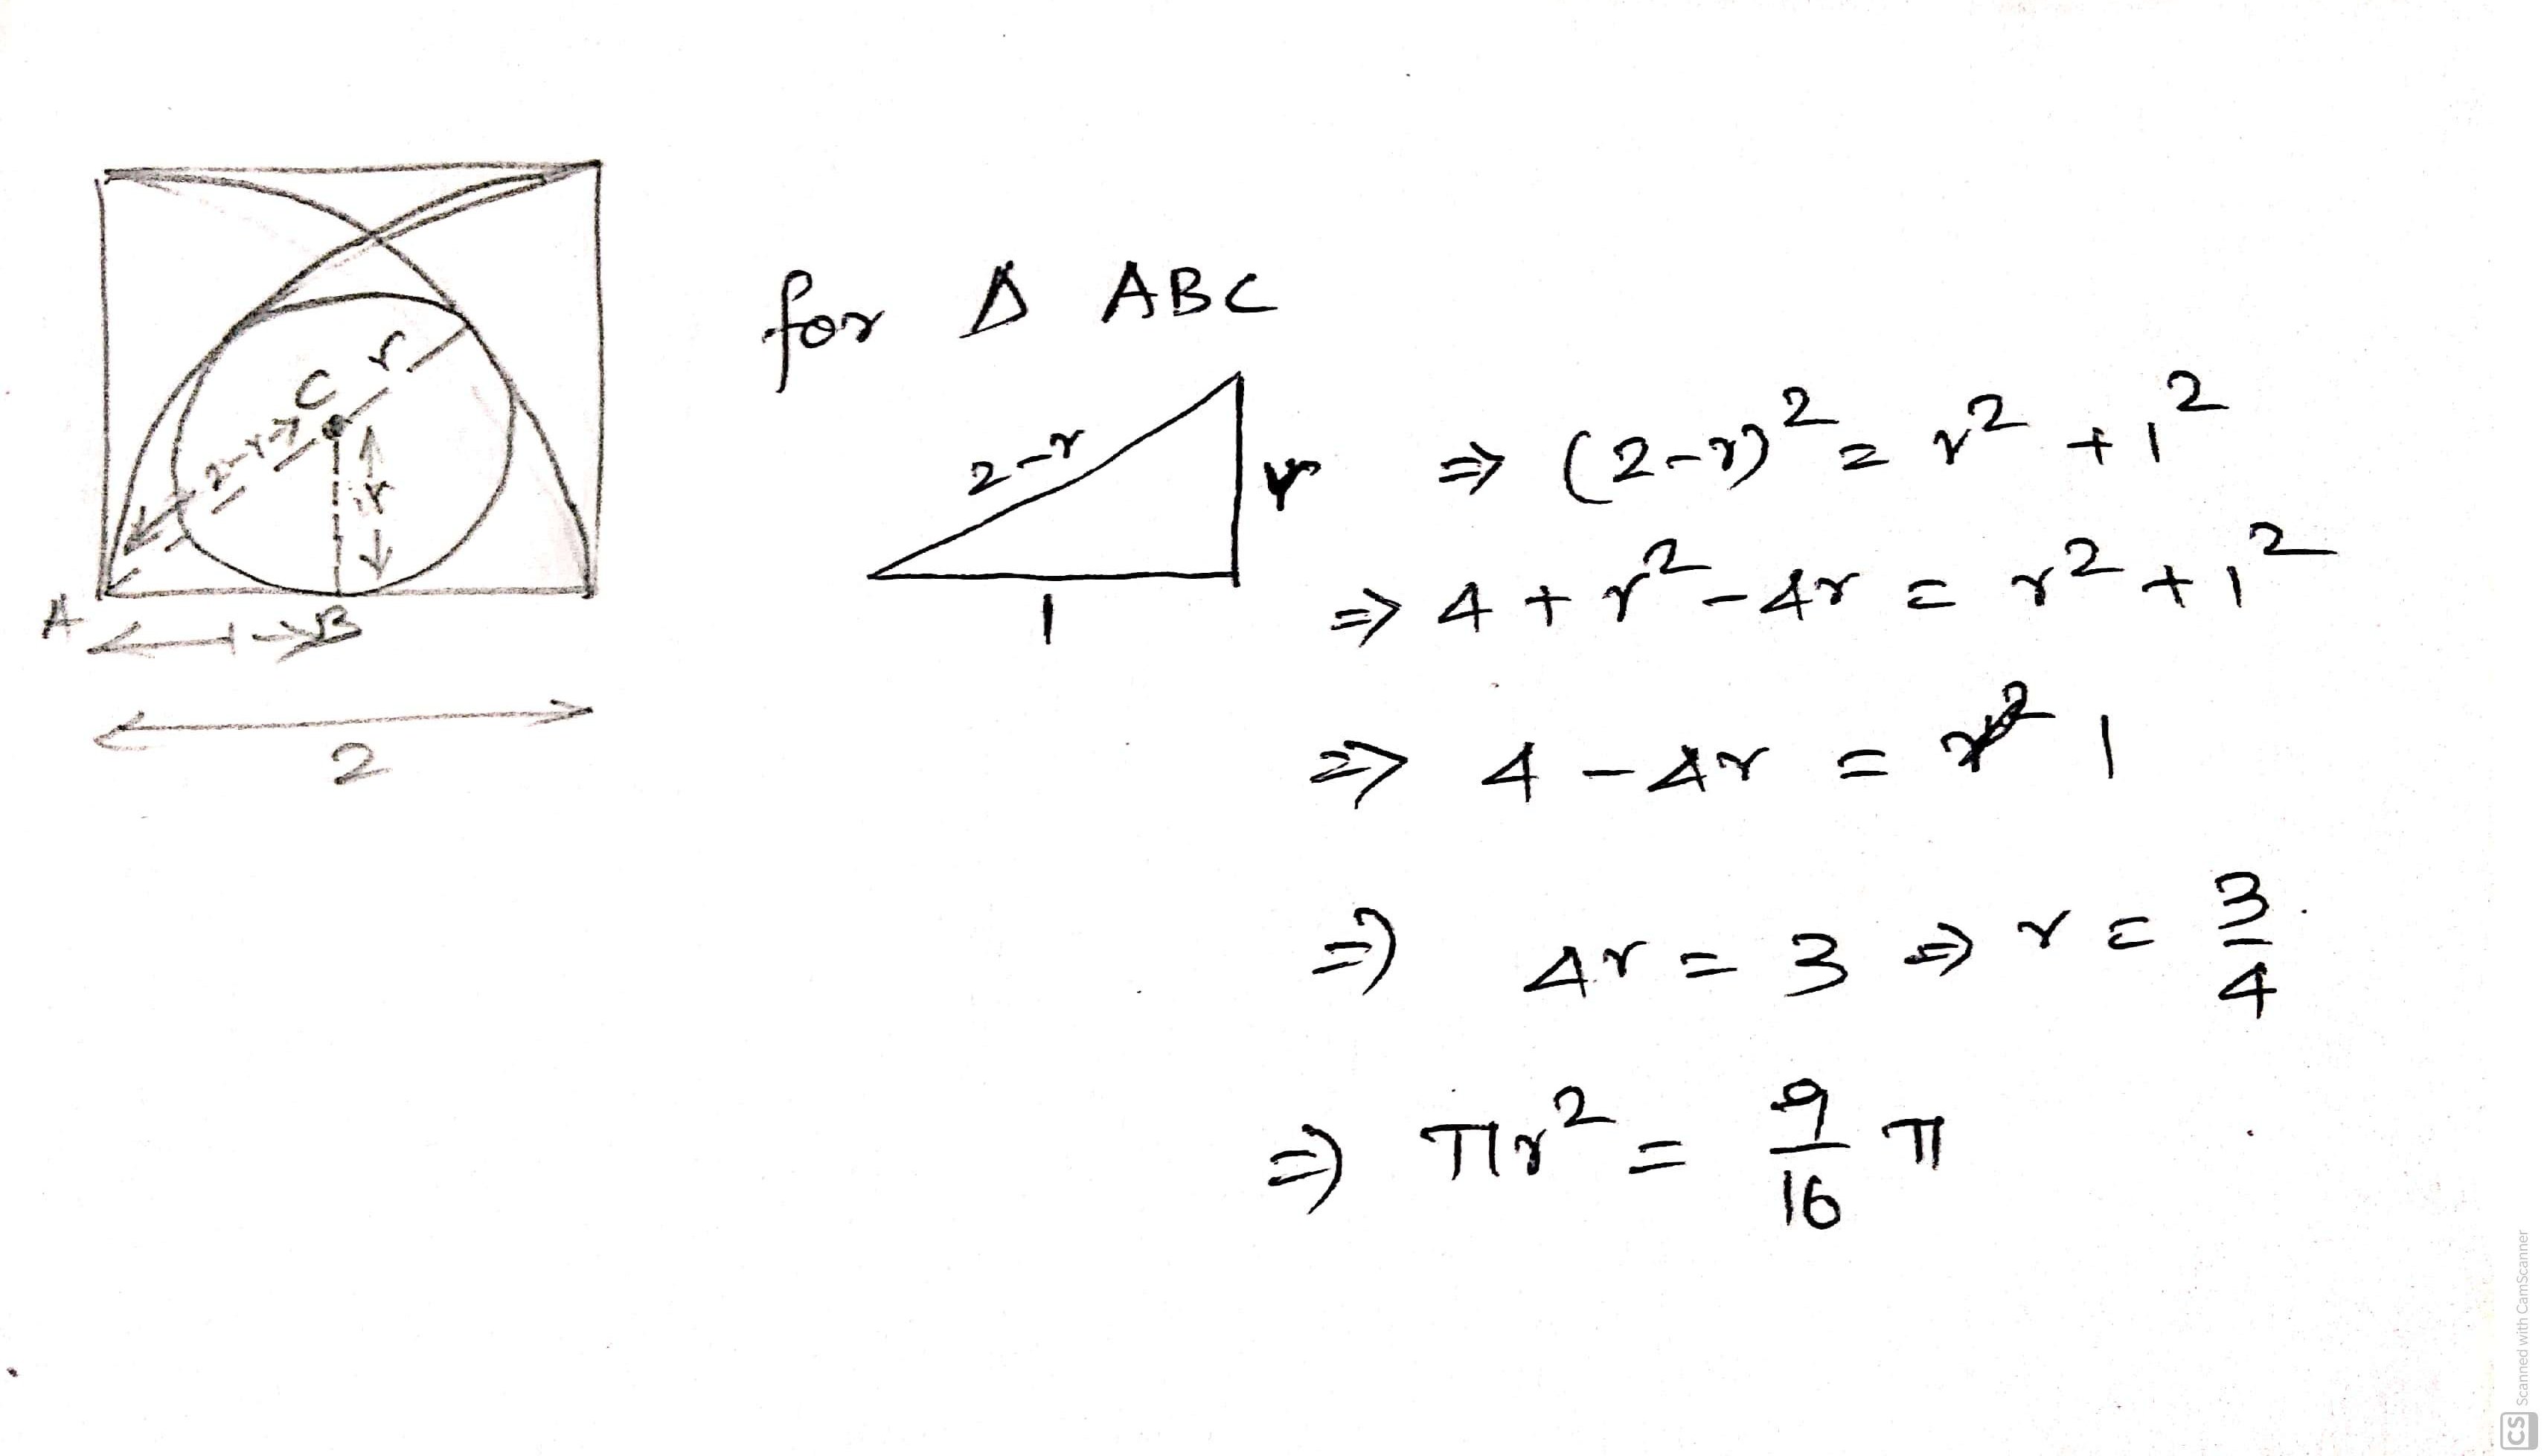 for Δ ABC
C
r
2-r
r
A
B
1
2
2-r
r
1
⇒ (2-r)² = r² + 1²
⇒ 4 + r² - 4r = r² + 1²
⇒ 4 - 4r = 1
⇒ 4r = 3 ⇒ r = 3/4
⇒ πr² = 9/16 π
CS Scanned with CamScanner